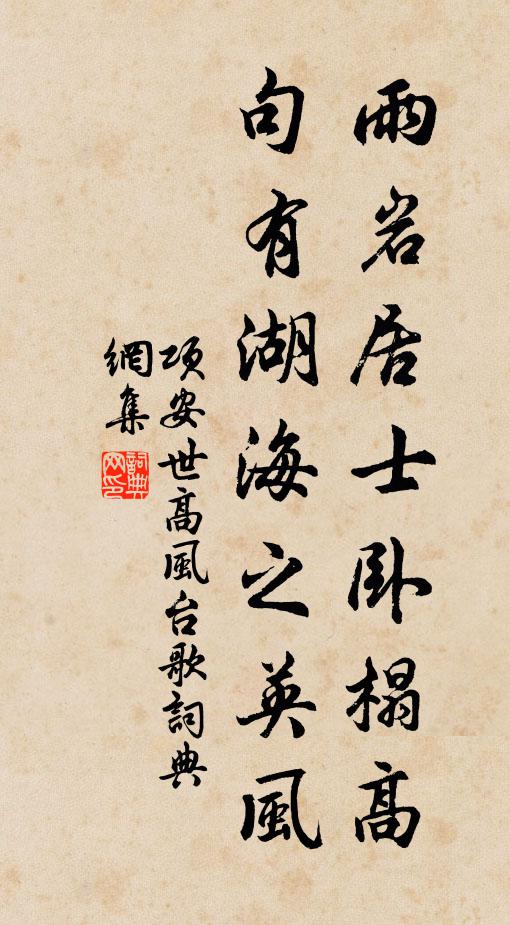 雨岩居士卧榻高
句有湖海之英風
项安世高風台歌詞典
網集
詞典网印